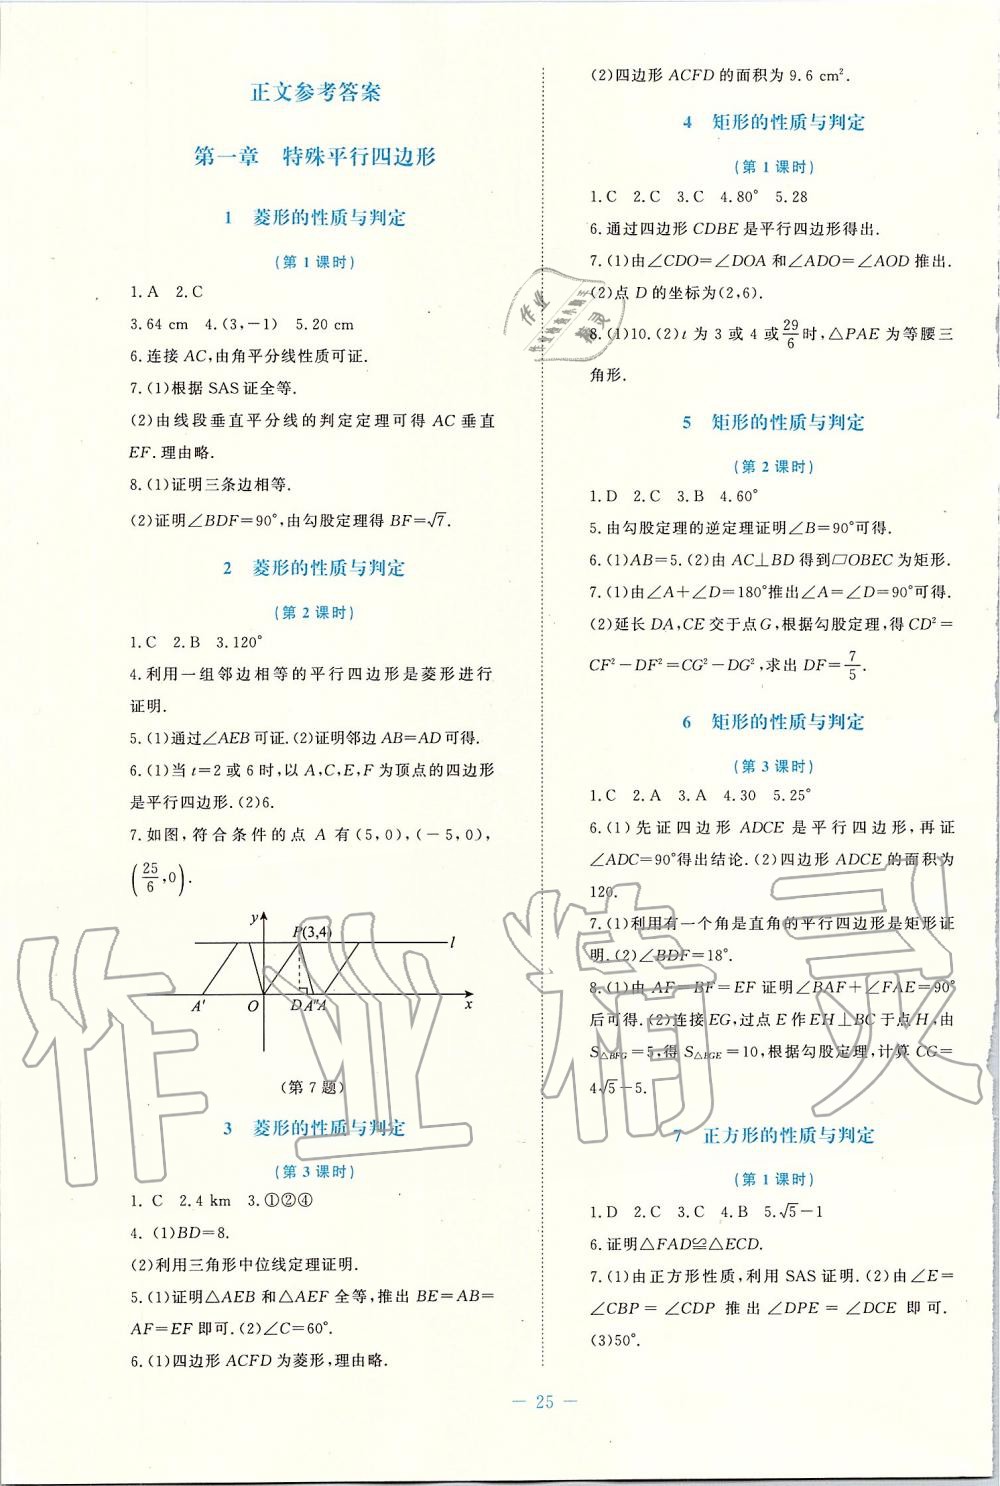 正文参考答案
第一章 特殊平行四边形
1 菱形的性质与判定
(第1课时)
1.A 2.C
3.64 cm 4.(3,-1) 5.20 cm
6.连接 AC,由角平分线性质可证.
7.(1)根据 SAS 证全等.
(2)由线段垂直平分线的判定定理可得 AC 垂直
EF.理由略.
8.(1)证明三条边相等.
(2)证明∠BDF=90°,由勾股定理得 BF=√7.
2 菱形的性质与判定
(第2课时)
1.C 2.B 3.120°
4.利用一组邻边相等的平行四边形是菱形进行
证明.
5.(1)通过∠AEB 可证.(2)证明邻边 AB=AD 可得.
6.(1)当 t=2 或 6 时,以 A,C,E,F 为顶点的四边形
是平行四边形.(2)6.
7.如图,符合条件的点 A 有(5,0),(-5,0),
(25/6,0).
y
P(3,4)
l
A′ O D A″ A x
(第7题)
3 菱形的性质与判定
(第3课时)
1. C 2.4 km 3.①②④
4. (1)BD=8.
(2)利用三角形中位线定理证明.
5.(1)证明△AEB 和△AEF 全等,推出 BE=AB=
AF=EF 即可.(2)∠C=60°.
6.(1)四边形 ACFD 为菱形,理由略.
(2)四边形 ACFD 的面积为 9.6 cm².
4 矩形的性质与判定
(第1课时)
1.C 2.C 3.C 4.80° 5.28
6.通过四边形 CDBE 是平行四边形得出.
7.(1)由∠CDO=∠DOA 和∠ADO=∠AOD 推出.
(2)点 D 的坐标为(2,6).
8.(1)10.(2)t 为 3 或 4 或29/6时,△PAE 为等腰三
角形.
5 矩形的性质与判定
(第2课时)
1.D 2.C 3.B 4.60°
5.由勾股定理的逆定理证明∠B=90°可得.
6.(1)AB=5.(2)由 AC⊥BD 得到▱OBEC 为矩形.
7.(1)由∠A+∠D=180°推出∠A=∠D=90°可得.
(2)延长 DA,CE 交于点 G,根据勾股定理,得 CD²=
CF²-DF²=CG²-DG²,求出 DF=7/5.
6 矩形的性质与判定
(第3课时)
1.C 2.A 3.A 4.30 5.25°
6.(1)先证四边形 ADCE 是平行四边形,再证
∠ADC=90°得出结论.(2)四边形 ADCE 的面积为
120.
7.(1)利用有一个角是直角的平行四边形是矩形证
明.(2)∠BDF=18°.
8.(1)由 AF=BF=EF 证明∠BAF+∠FAE=90°
后可得.(2)连接 EG,过点 E 作 EH⊥BC 于点 H,由
S△BFG=5,得 S△EGE=10,根据勾股定理,计算 CG=
4√5-5.
7 正方形的性质与判定
(第1课时)
1.D 2.C 3.C 4.B 5.√5-1
6.证明△FAD≌△ECD.
7.(1)由正方形性质,利用 SAS 证明.(2)由∠E=
∠CBP=∠CDP 推出∠DPE=∠DCE 即可.
(3)50°.
— 25 —
作业精灵